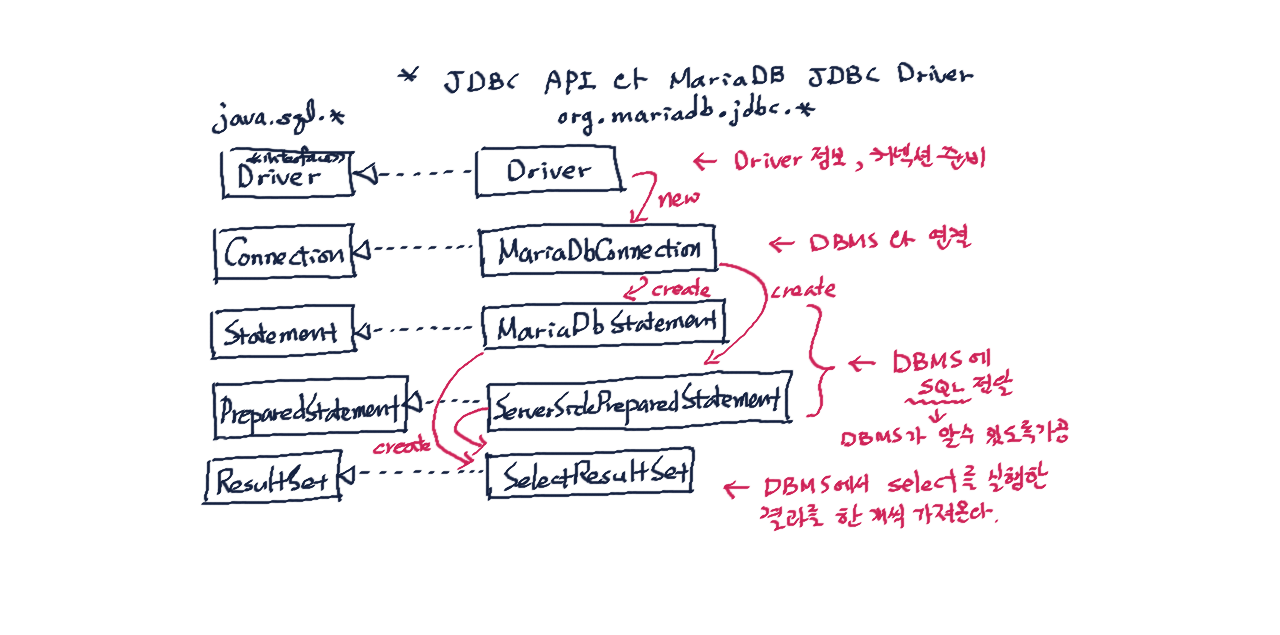 * JDBC API 와 MariaDB JDBC Driver
java.sql.*
org.mariadb.jdbc.*
<<interface>>
Driver
Driver
← Driver 정보, 커넥션 준비
new
Connection
MariaDbConnection
← DBMS 와 연결
create
create
Statement
MariaDbStatement
← DBMS에
SQL 전달
PreparedStatement
ServerSidePreparedStatement
DBMS가 알수 있도록가공
create
ResultSet
SelectResultSet
← DBMS에서 select를 실행한
결과를 한 개씩 가져온다.